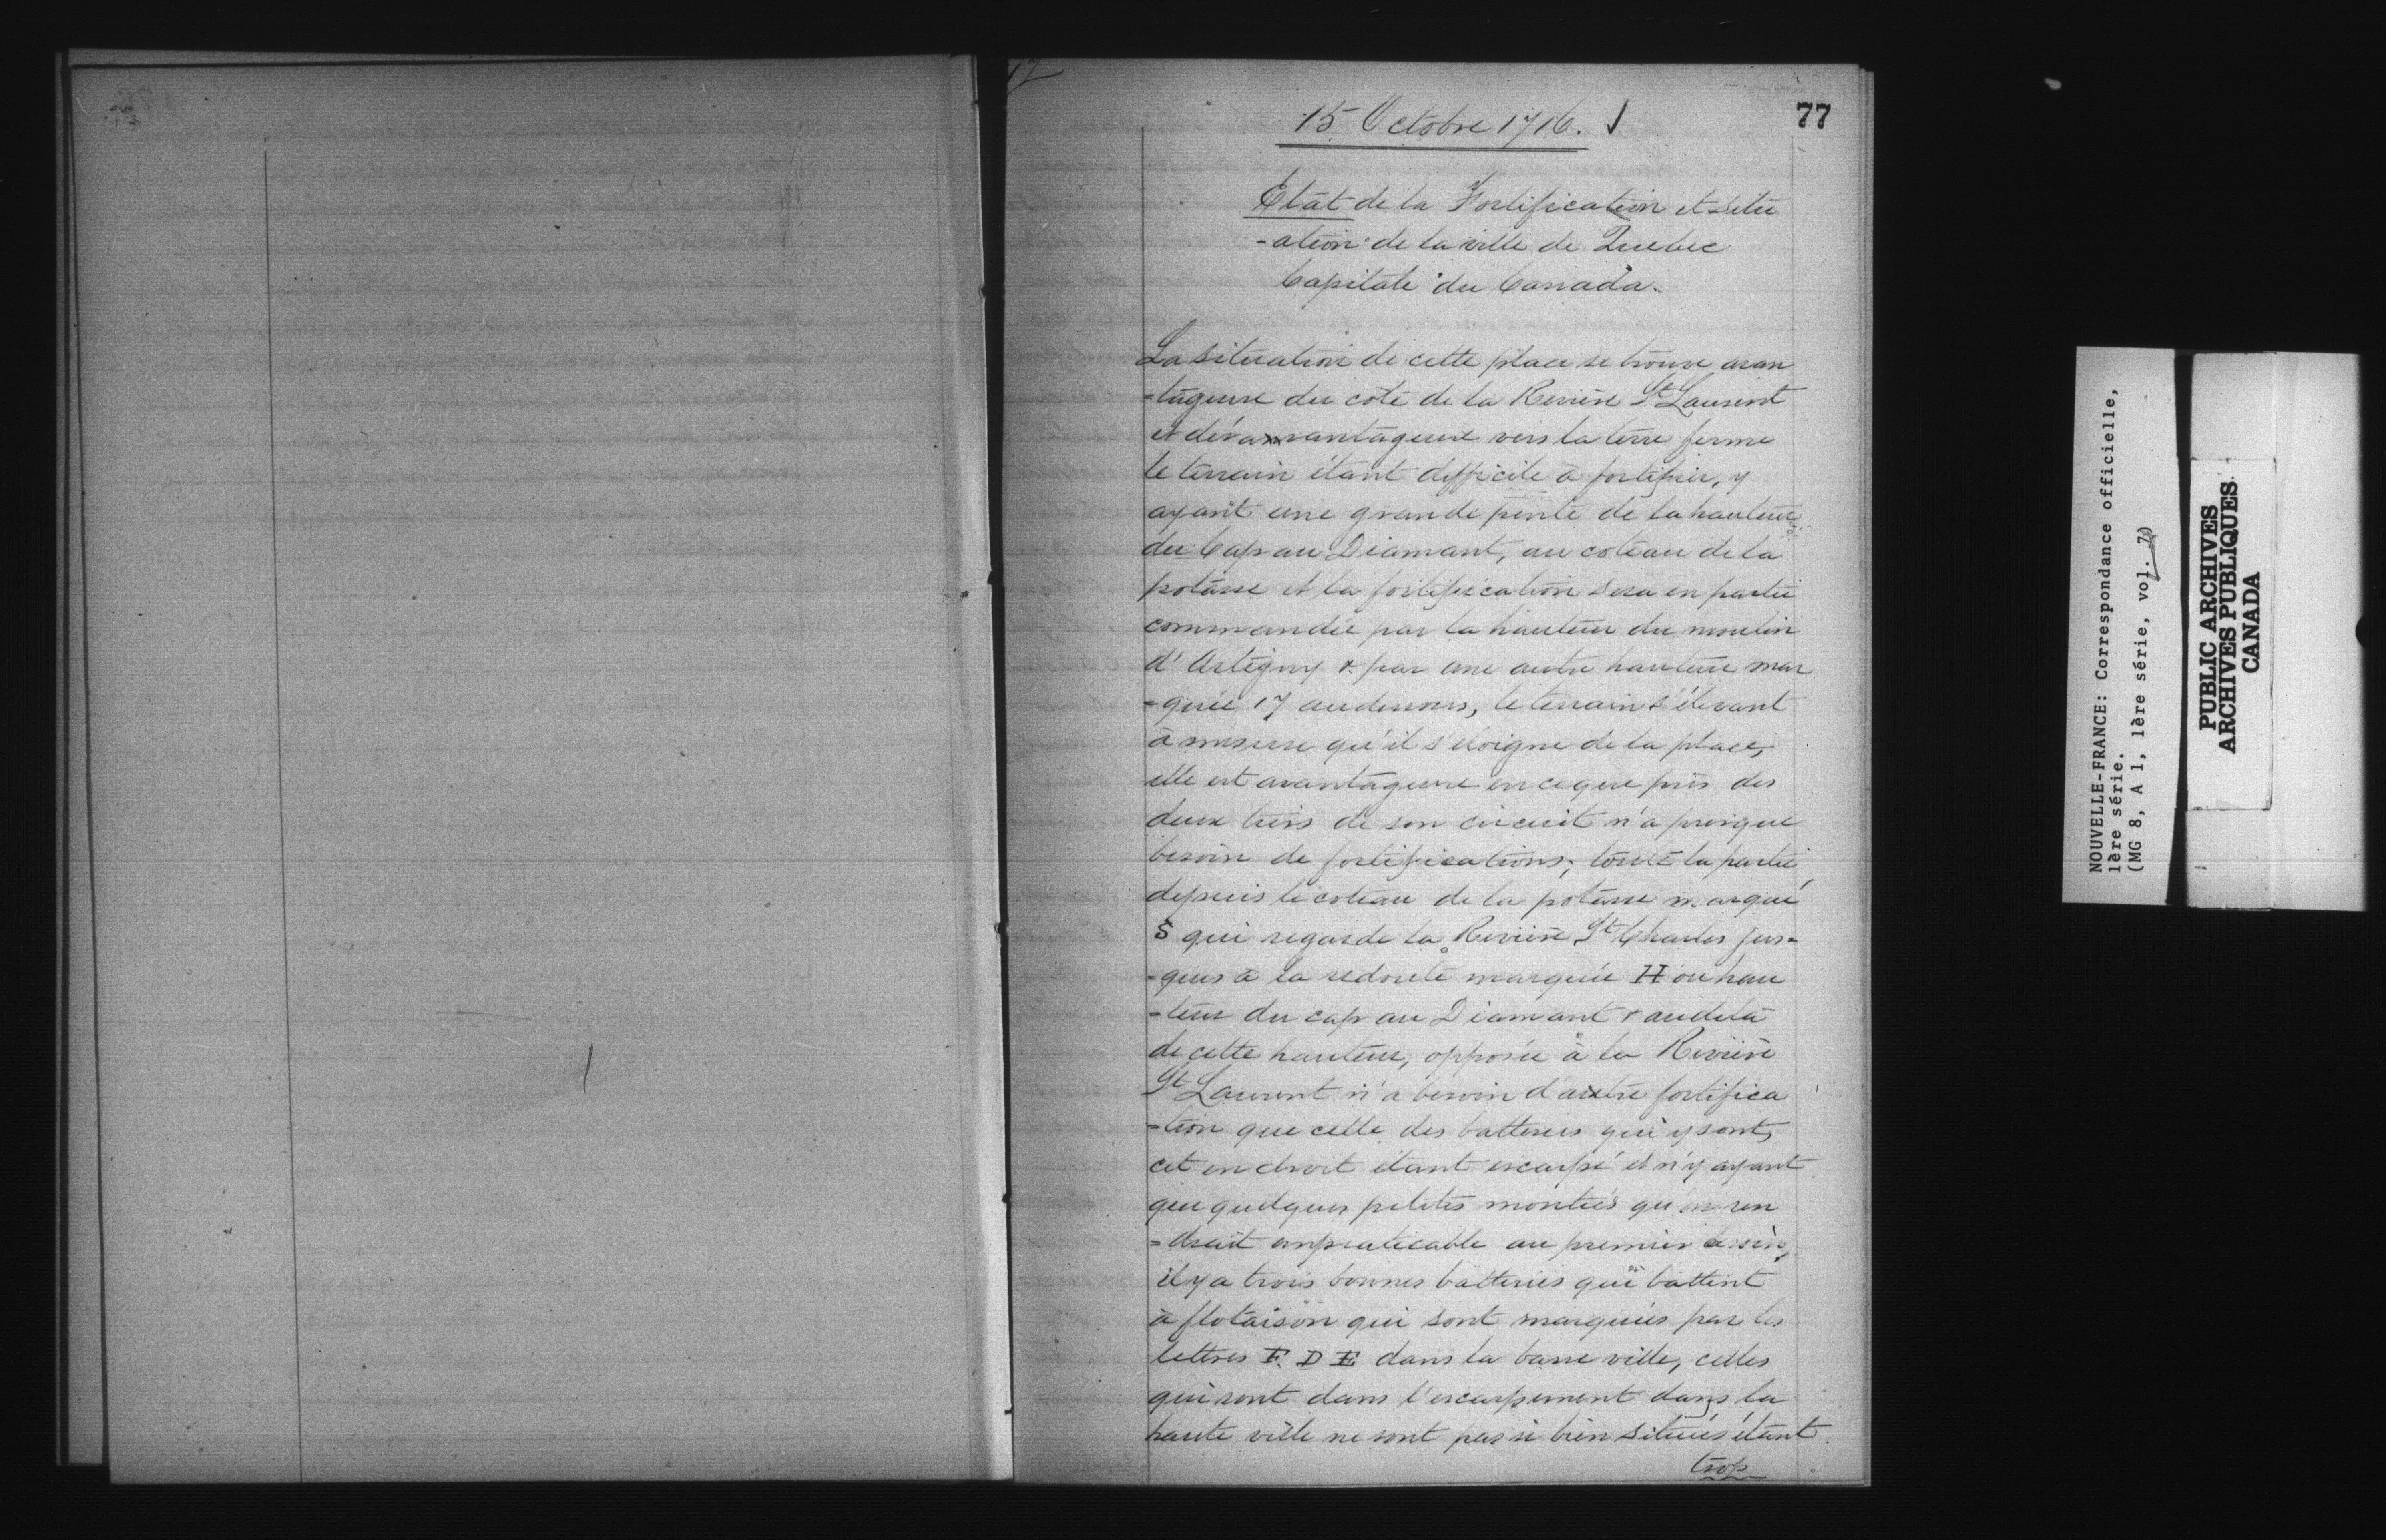 77
15 Octobre 1716.
Etat de la Fortification et situ
-ation de la ville de Quebec
Capitale du Canada.
La situation de cette place se trouve avan
-tageuse du coté de la Rivière St Laurent
et désavantageuse vers la terre ferme
le terrain étant difficile à fortifier, y
ayant une grande pente de la hauteur
du Cap au Diamant, au coteau de la
potasse et la fortification sera en partie
commandée par la hauteur du moulin
d'Artigny & par une autre hauteur mar
-quée 17 audessus, le terrain s'élevant
à mesure qu'il s'eloigne de la place,
elle est avantageuse en ceque près des
deux tiers de son circuit n'a presque
besoin de fortifications; toute la partie
depuis le coteau de la potasse marqué
S qui regarde la Rivière St Charles jus-
-ques à la redoute marquée H ou hau
-teur du cap au Diamant & audela
de cette hauteur, opposée à la Rivière
St Laurent n'a besoin d'autre fortifica
-tion que celle des batteries qui y sont,
cet endroit étant escarpé et n'y ayant
que quelques petites montées qu'on ren
-drait impraticable au premier besoin,
il y a trois bonnes batteries qui battent
à flotaison qui sont marquées par les
lettres F. D E dans la basse ville, celles
qui sont dans l'escarpement dans la
haute ville ne sont pas si bien situées étant
trop
NOUVELLE-FRANCE: Correspondance officielle,
1ère série.
(MG 8, A 1, 1ère série, vol. 7)
PUBLIC ARCHIVES
ARCHIVES PUBLIQUES
CANADA